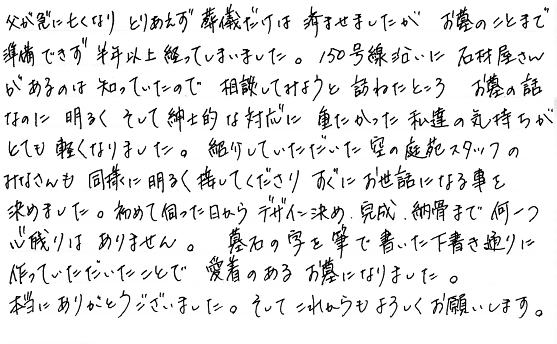 父が急に亡くなり とりあえず 葬儀だけは 済ませましたが お墓のことまで
準備できず 半年以上 経ってしまいました。150号線沿いに 石材屋さん
があるのは 知っていたので 相談してみようと 訪ねたところ お墓の話
なのに 明るく そして紳士的な対応に 重たかった 私達の気持ちが
とても 軽くなりました。紹介していただいた 空の庭苑スタッフの
みなさんも 同様に明るく接してくださり すぐに お世話になる事を
決めました。初めて伺った日から デザイン決め、完成、納骨まで 何一つ
心残りは ありません。 墓石の字を 筆で 書いた下書き通りに
作っていただいたことで 愛着のある お墓になりました。
本当に ありがとうございました。そして これからも よろしく お願いします。